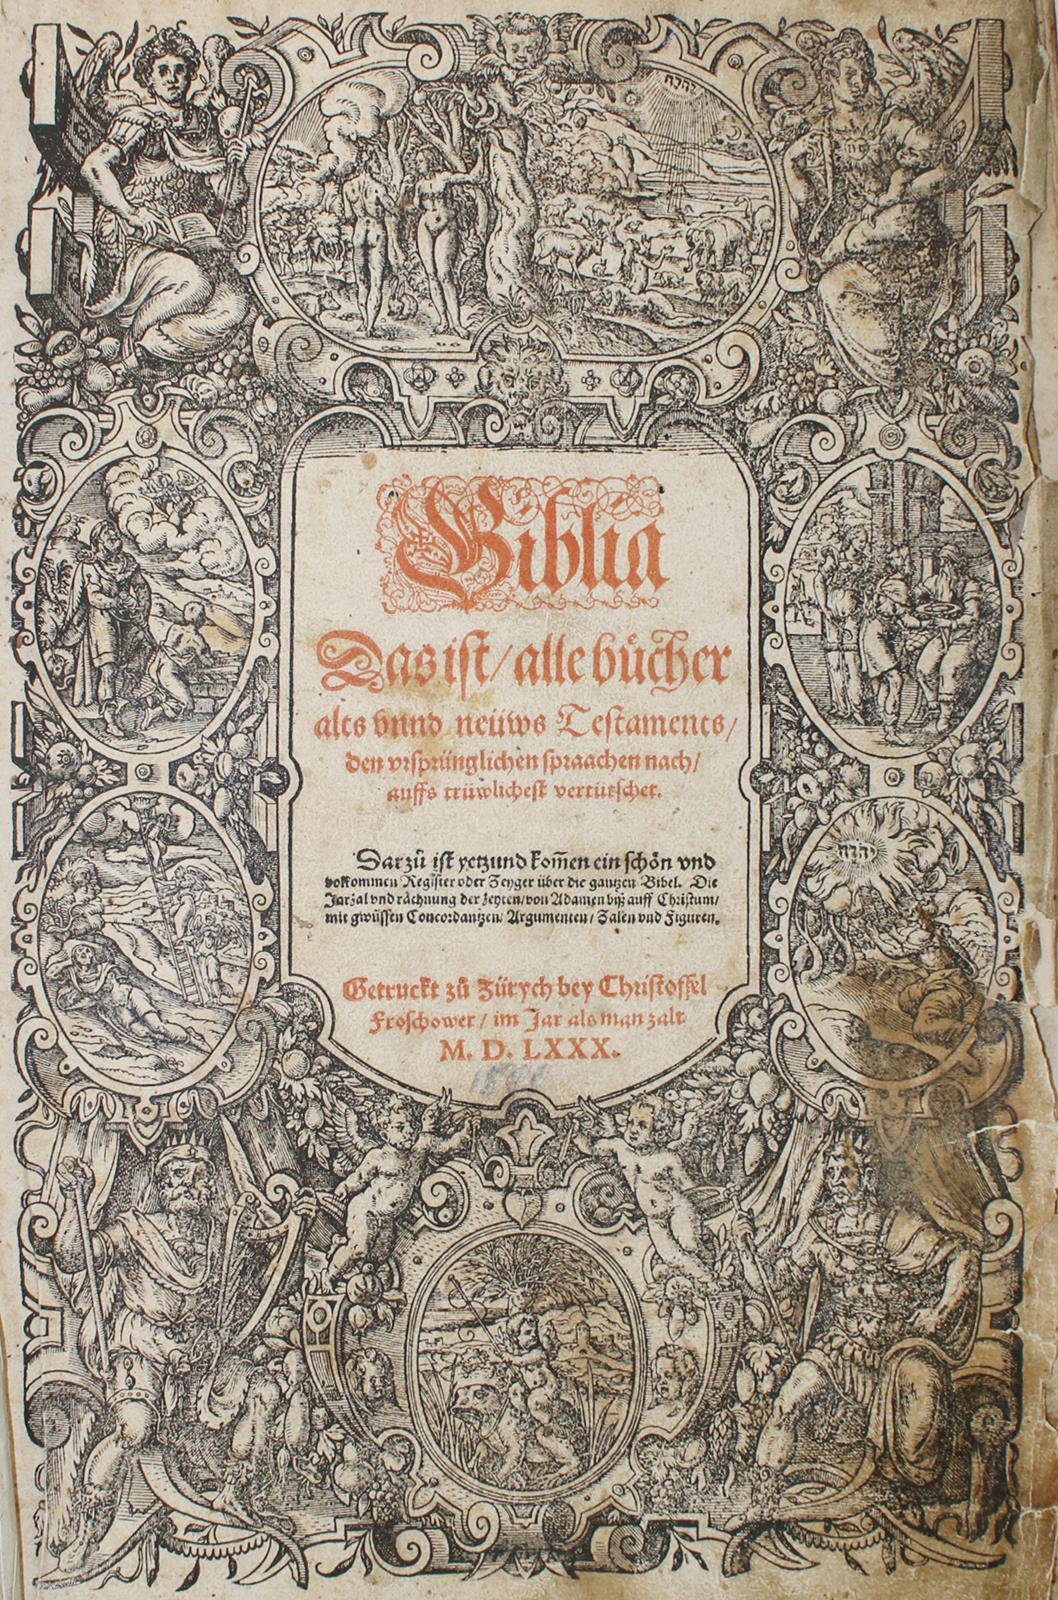 יהוה
Biblia
Das ist / alle bůcher
alts vnnd neüws Testaments /
den vrsprünglichen spraachen nach /
auffs trüwlichest vertütschet.
Darzů ist yetzund kom̃en ein schőn vnd
volkommen Register oder Zeyger über die gantzen Bibel. Die
Jarzal vnd råchnung der zeyten / von Adamen biß auff Christum /
mit gwüssen Concordantzen / Argumenten / Zalen vnd Figuren.
יהוה
Getruckt zů Zürych bey Christoffel
Froschower / im Jar als man zalt
M. D. LXXX.